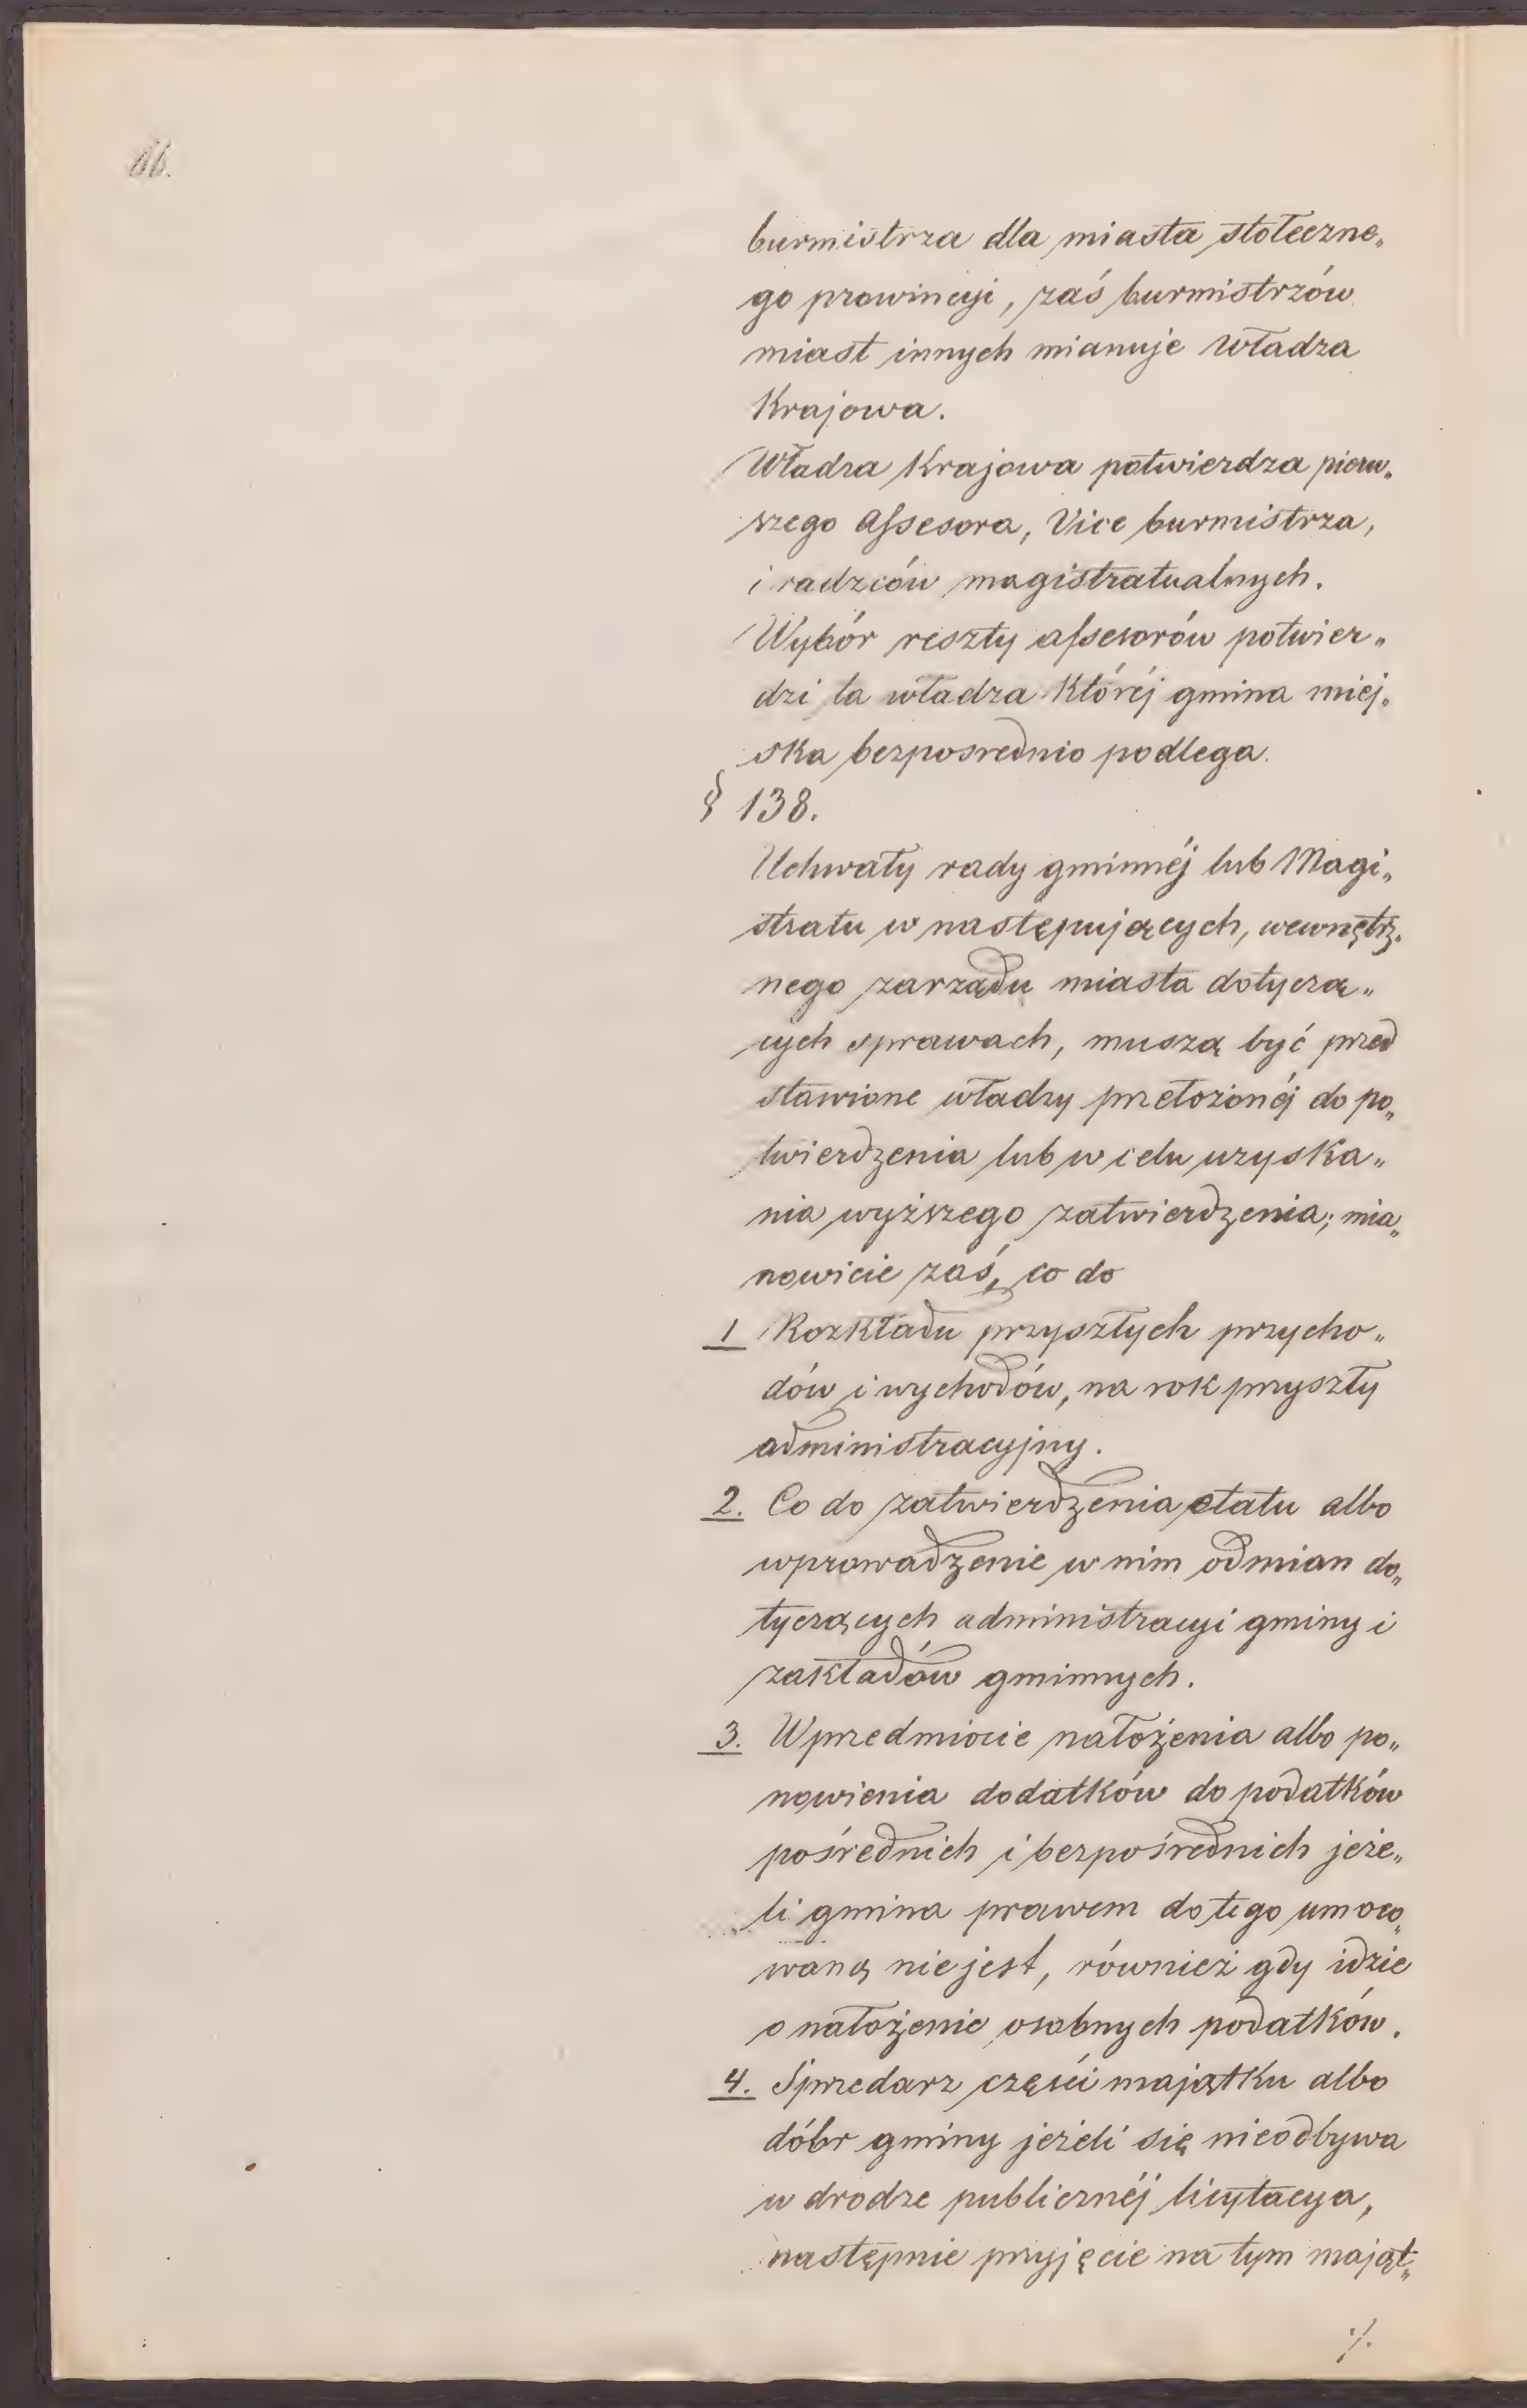 66.
burmistrza dla miasta stołeczne„
go prowincyi, zaś burmistrzów
miast innych mianuje Władza
Krajowa.
Władza Krajowa potwierdza pierw„
szego Assesora, Vice burmistrza,
i radzców magistratualnych.
Wybór reszty assesorów potwier„
dzi ta władza któréj gmina miej„
ska bezposrednio podlega.
§ 138.
Uchwały rady gminnéj lub Magi„
stratu w następujących, wewnętrz„
nego zarządu miasta dotyczą„
cych sprawach, muszą być przed
stawione władzy przełożonéj do po„
twierdzenia lub w celu uzyska„
nia wyższego zatwierdzenia; mia„
nowicie zaś, co do
1 Rozkładu przyszłych przycho„
dów i wychodów, na rok przyszły
administracyjny.
2. Co do zatwierdzenia etatu albo
wprowadzenie w nim odmian do„
tyczących administracyi gminy i
zakładów gminnych.
3. W przedmiocie nałożenia albo po„
nowienia dodatków do podatków
pośrednich i bezpośrednich jeże„
li gmina prawem do tego umoco„
waną nie jest, również gdy idzie
o nałożenie osobnych podatków.
4. Sprzedarz części majątku albo
dóbr gminy jeżeli się nieodbywa
w drodze publicznéj licytacya,
następnie przyjęcie na tym mająt„
·/.